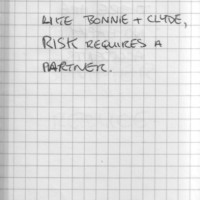 LIKE BONNIE + CLYDE,
RISK REQUIRES A
PARTNER.